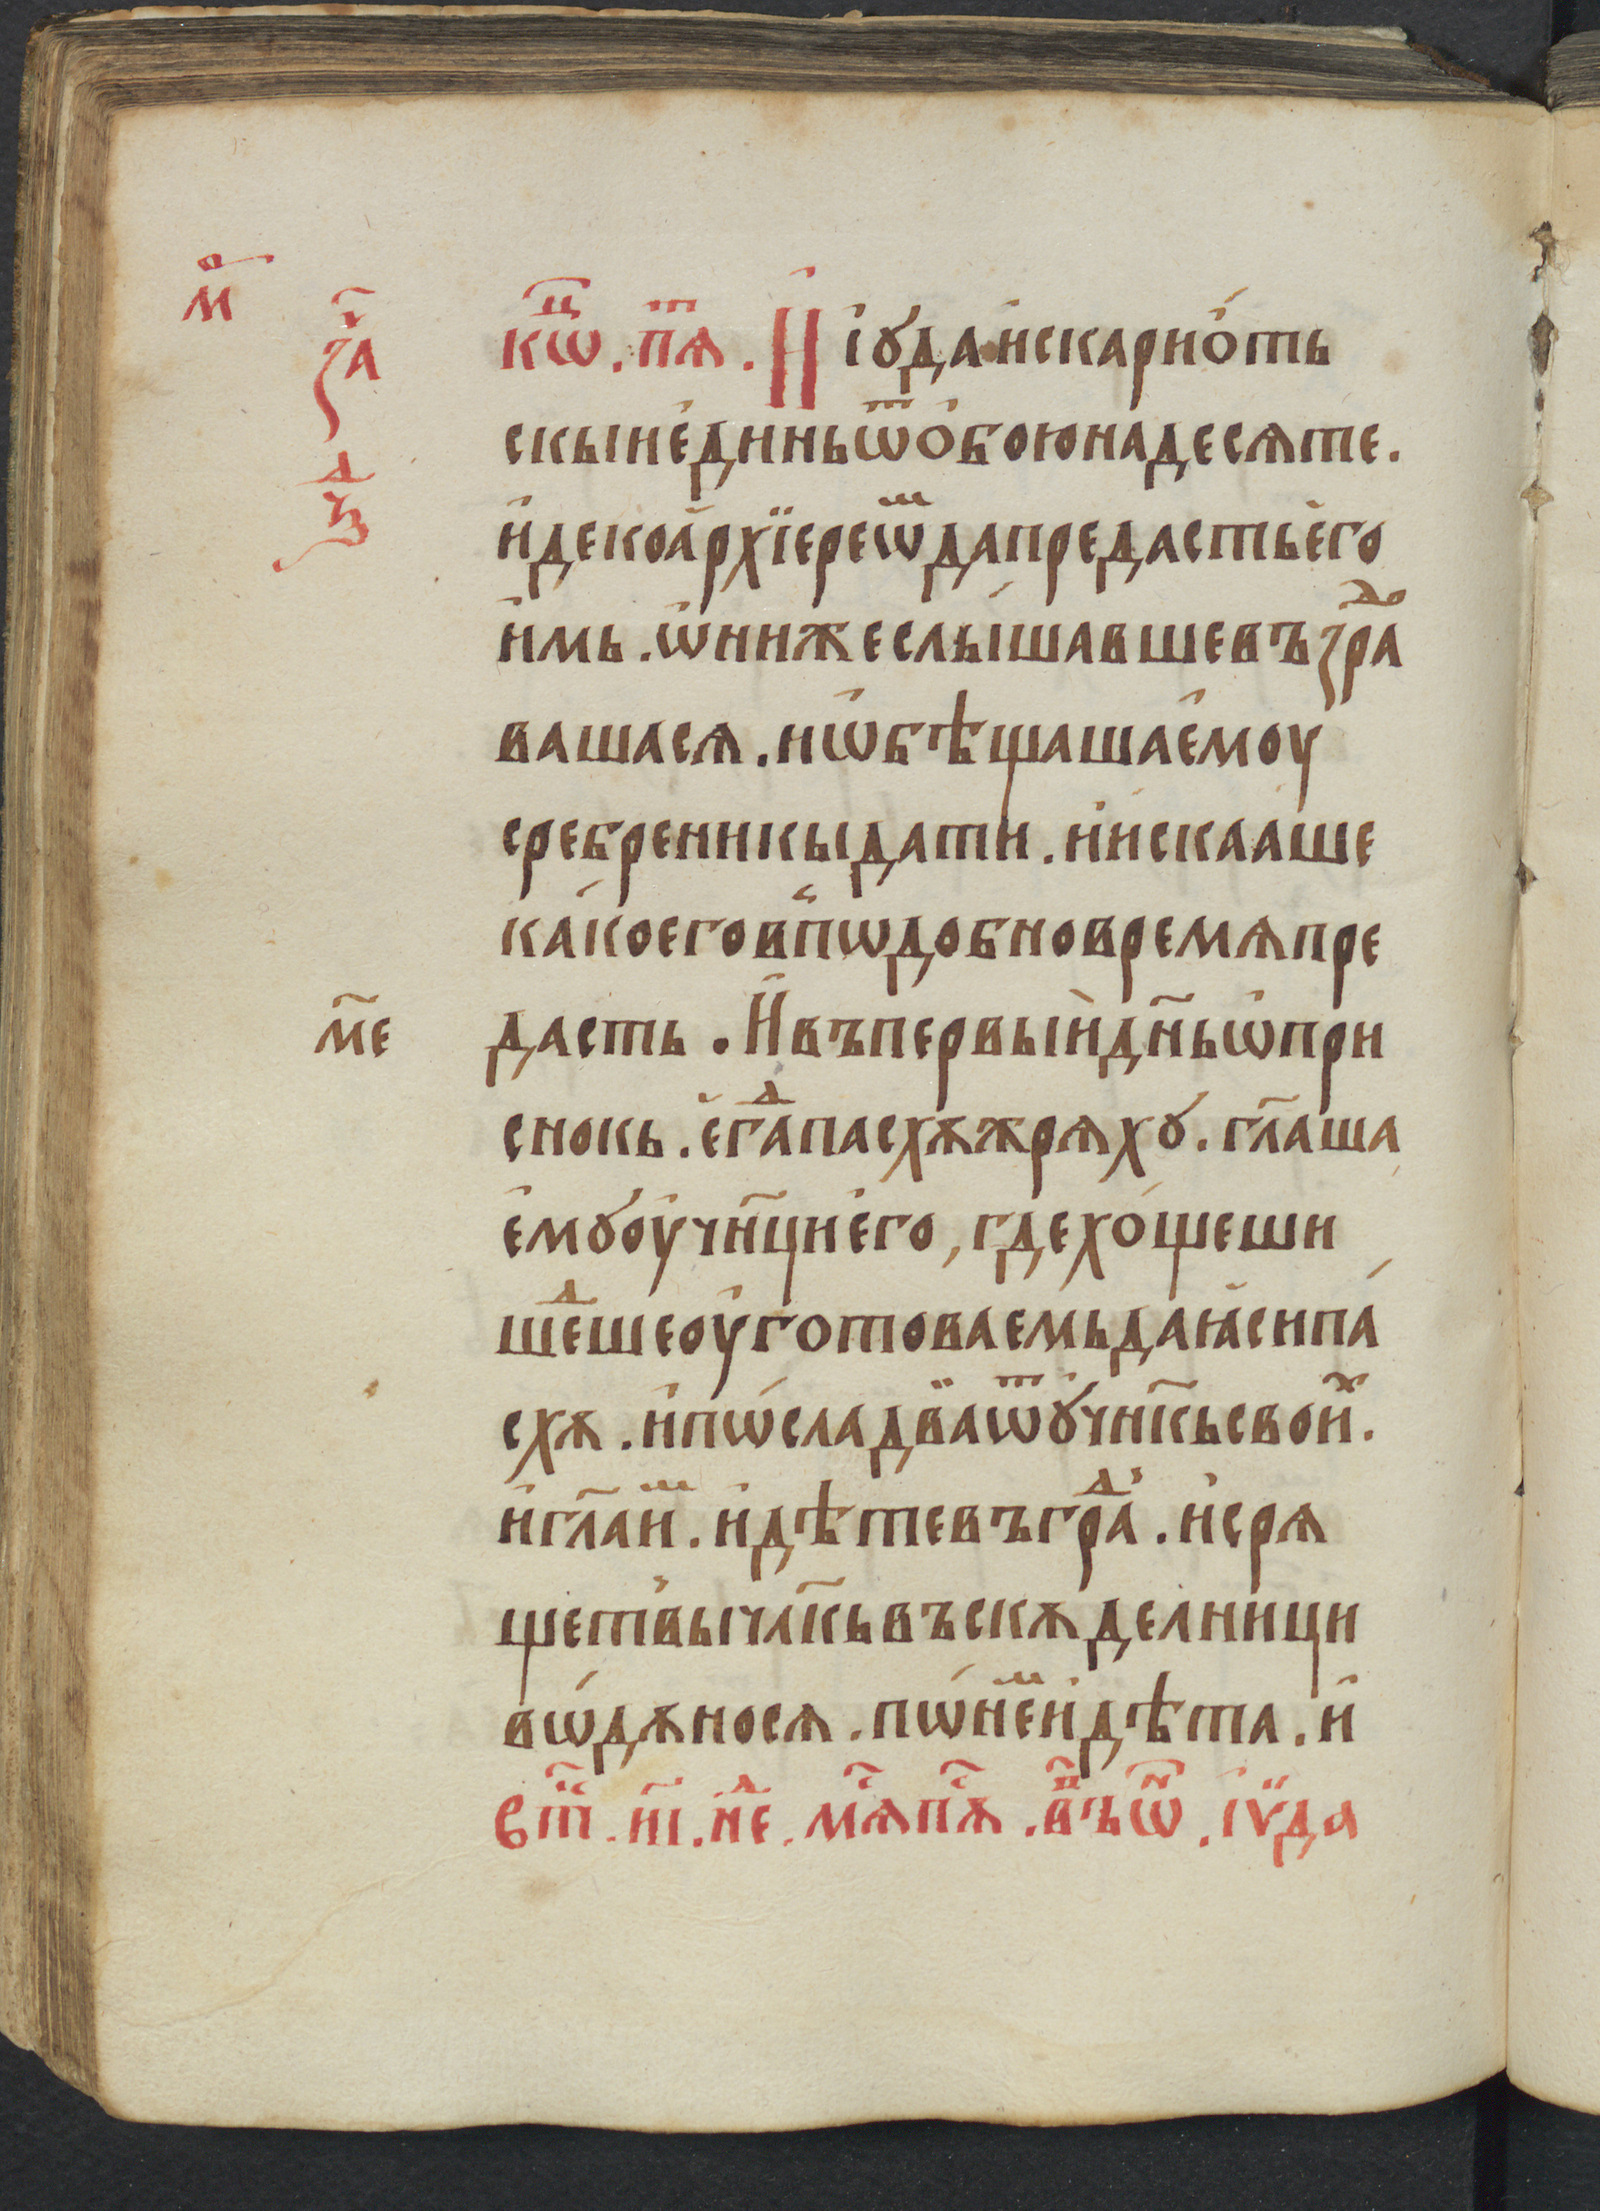 м҃
за҃ч
ѯ҃д
кⷰ҇ѡ . пⷮ҇ѧ . И҆ і҆ꙋда и҆скарїѡ́ть
скыи е҆динь ѿ о҆боюнадесѧте .
и҆де ко а҆рхїереѡⷨ да предасть е҆го
и҆мь . ѡ҆ниже слы́шавше въꙁраⷣ
вашасѧ . и ѡ҆бѣщаша е҆моу
сребреникы дати . и҆ и҆скааше
ка́ко его в пѡдобно времѧ пре
дасть . И҆ въ первыи дн҃ь ѡ҆при
снокь . е҆гⷣа пасхѫ жрѧхꙋ . гл҃аша
е҆мꙋ оу҆чн҃ци е҆го , где хо́щеши
шеⷣше оу҆готоваемь да ꙗ҆си па́
м҃е
схѫ . и҆ пѡсла два ѿ ꙋ҆чн҃кь своиⷯ .
и҆ гл҃а иⷨ . и҆дѣте въ граⷣ . и҆ срѧ
щет вы чл҃кь въ скѫделници
вѡ́дѫ носѧ . пѡ неⷨ и҆дѣта . и҆
Єⷡ҇т . н҃і . неⷣ . мⷭ҇ѧпⷭ҇ѫ . въ ѡ҃ . і҆ѵда